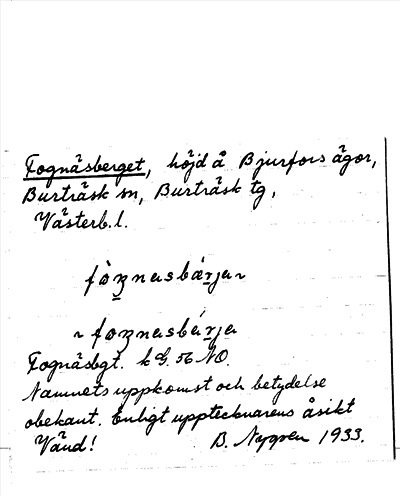 Fognäsberget, höjd å Bjurfors ägor,
Burträsk sn, Burträsk tg,
Västerb. l.
fòŋnasbǽrja ~
~ foŋnasbǽrja
Fognäsbgt. k G. 56 NO.
Namnets uppkomst och betydelse
obekant. Enligt upptecknarens åsikt
Vänd! B. Nygren 1933.